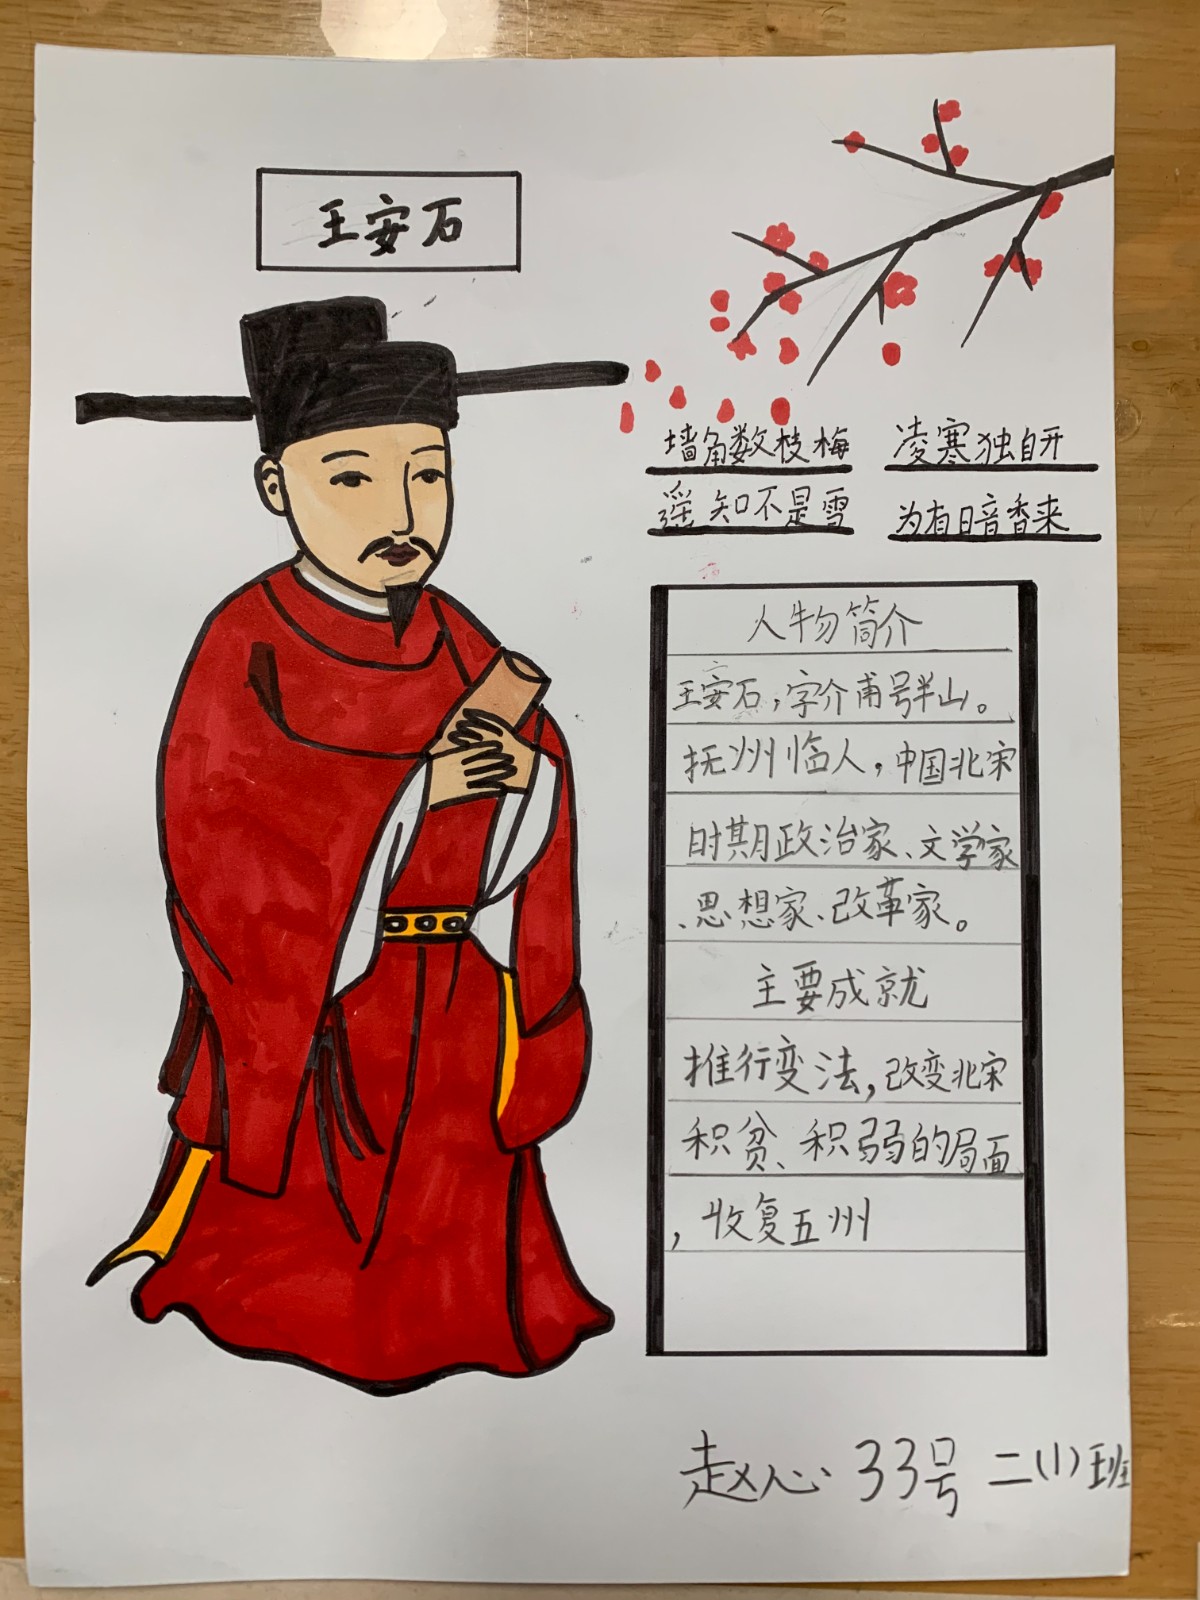 王安石
墙角数枝梅 凌寒独自开
遥知不是雪 为有暗香来
人物简介
王安石，字介甫号半山。
抚州临人，中国北宋
时期政治家、文学家
、思想家、改革家。
主要成就
推行变法，改变北宋
积贫、积弱的局面
，收复五州
赵心 33号 二(1)班